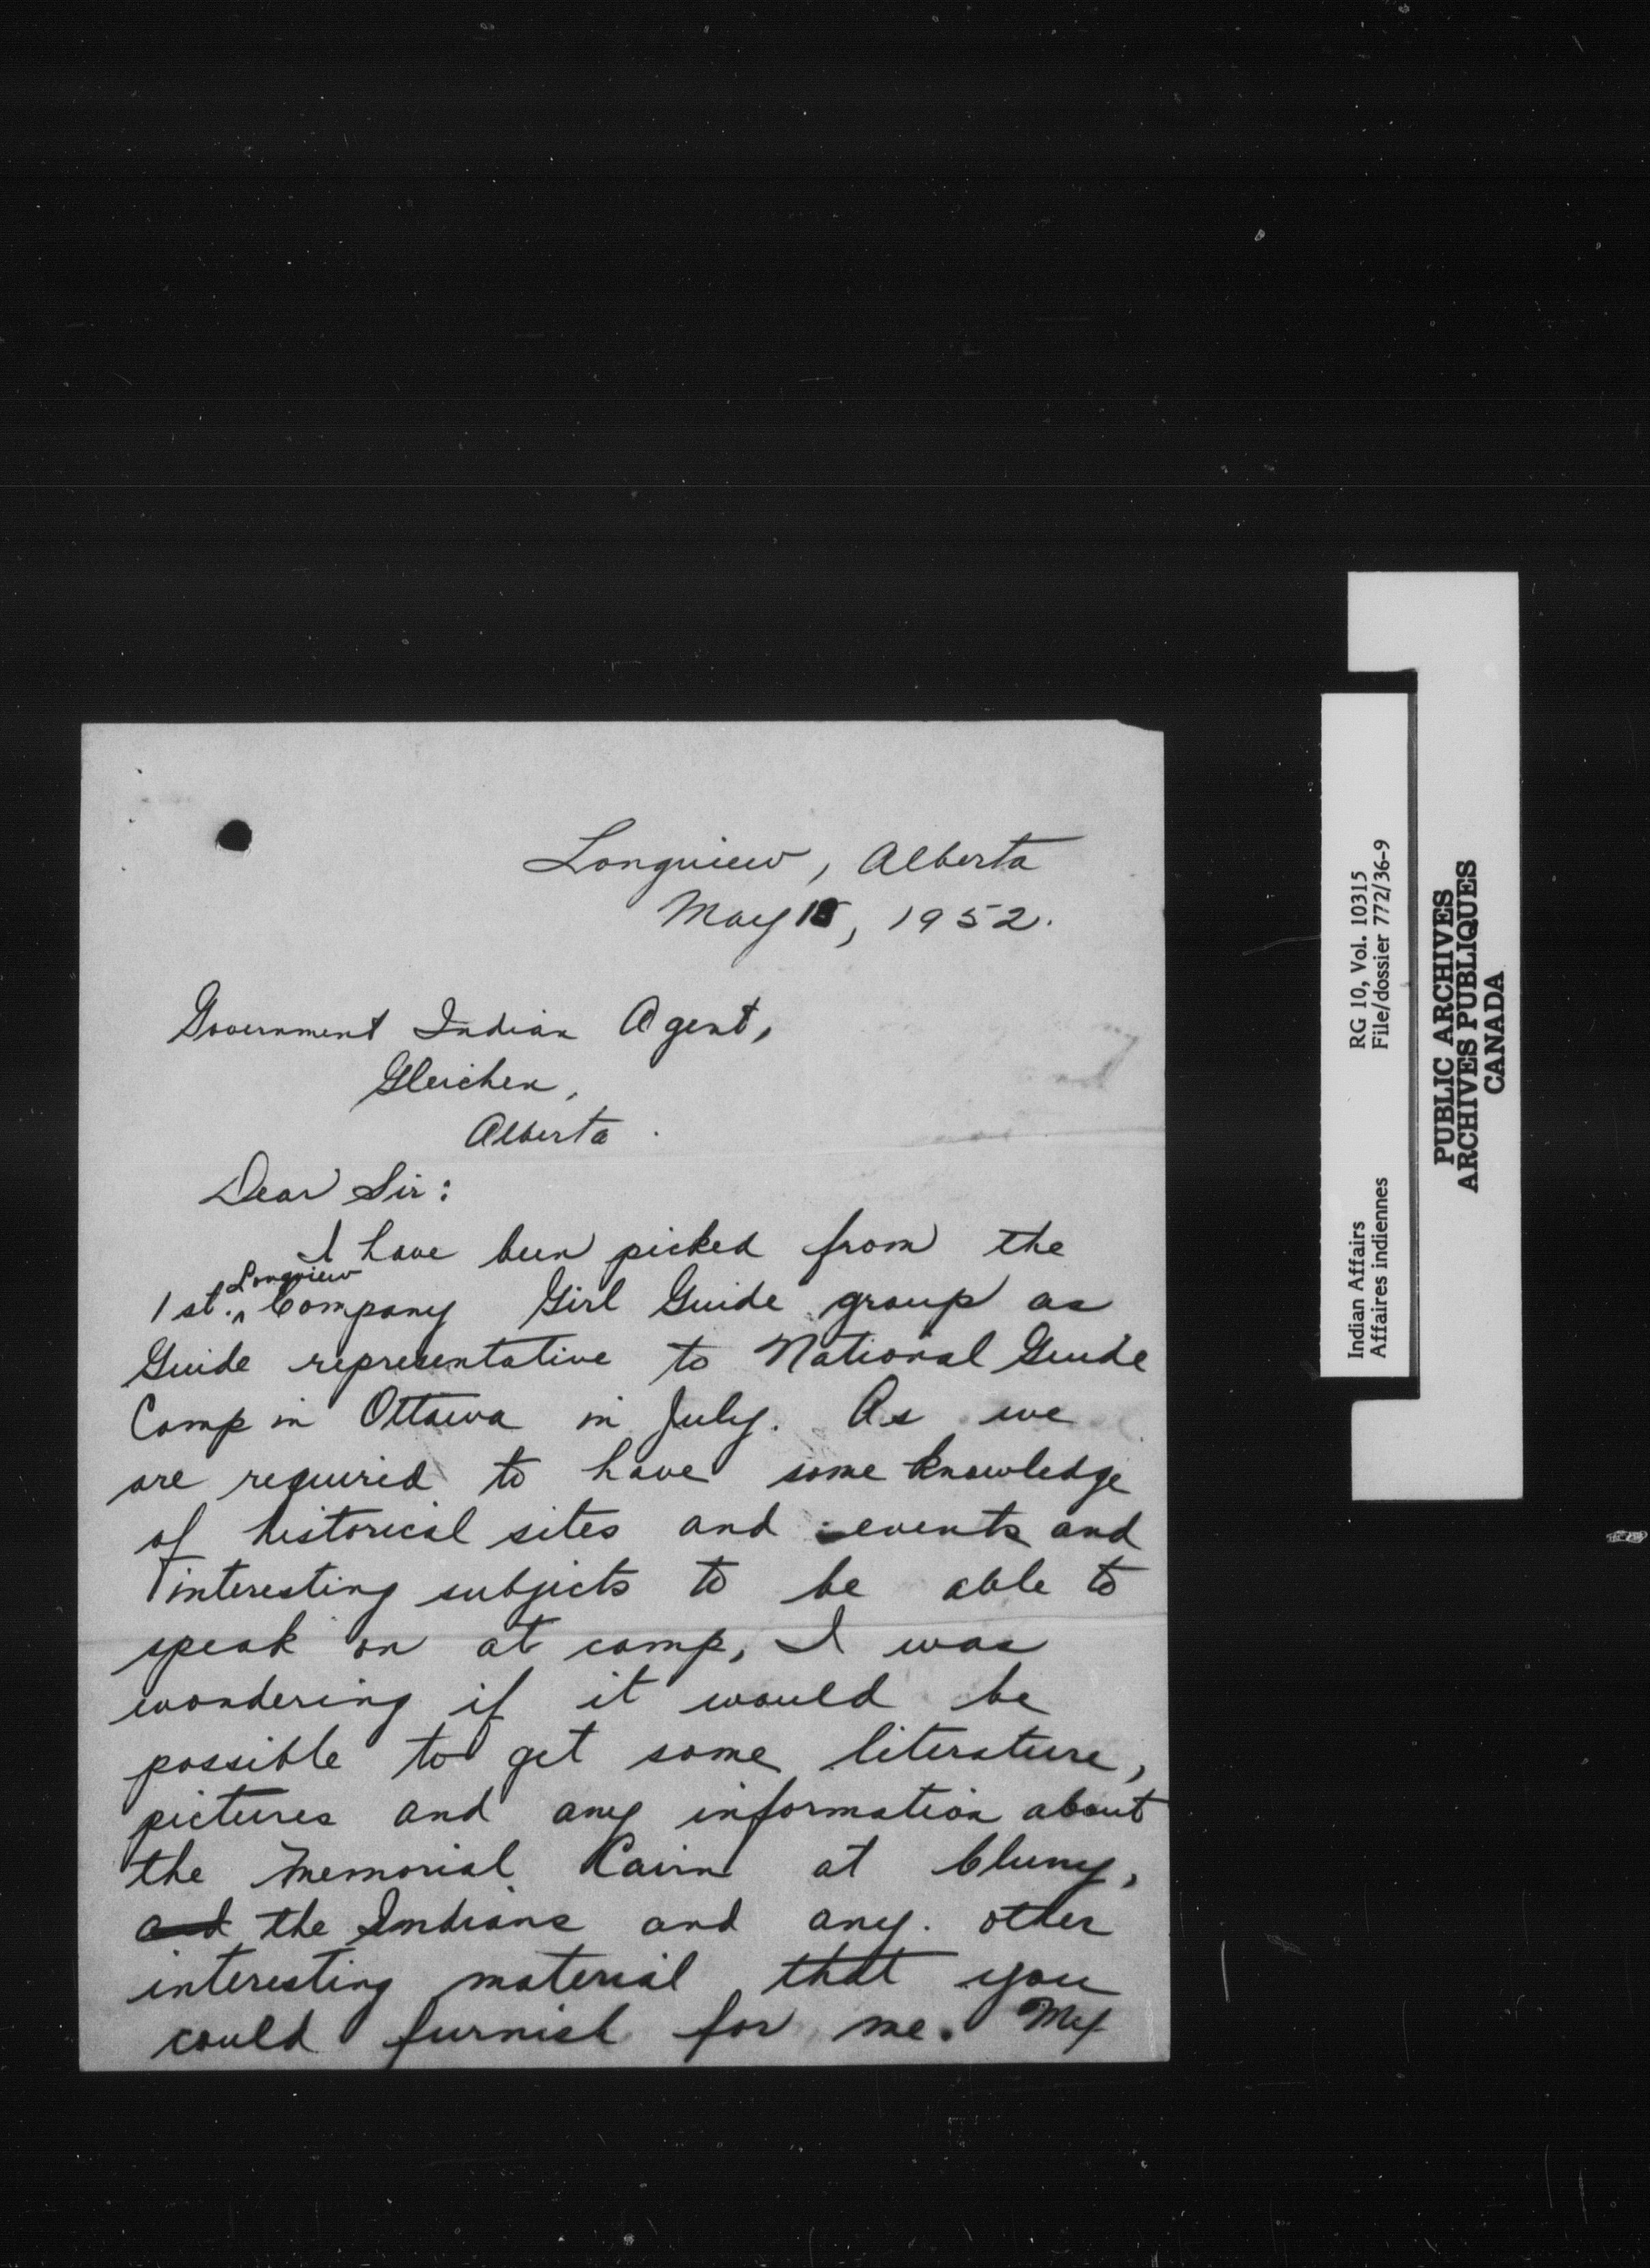 Longview, Alberta
May 15, 1952.
Government Indian Agent,
Gleichen,
Alberta.
Dear Sir:
I have been picked from the
1st. Longview Company Girl Guide group as
Guide representative to National Guide
Camp in Ottawa in July. As we
are required to have some knowledge
of historical sites and events and
interesting subjects to be able to
speak on at camp, I was
wondering if it would be
possible to get some literature,
pictures and any information about
the Memorial Cairn at Cluny,
and the Indians and any. other
interesting material that you
could furnish for me. My
Indian Affairs RG 10, Vol. 10315
Affaires indiennes File/dossier 772/36-9
PUBLIC ARCHIVES
ARCHIVES PUBLIQUES
CANADA